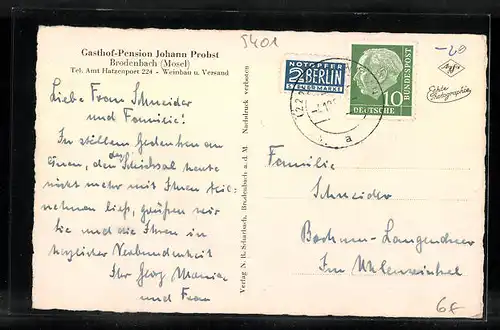 5401
Gasthof-Pension Johann Probst
Brodenbach (Mosel)
Tel. Amt Hatzenport 224 - Weinbau u. Versand
Liebe Frau Schneider
und Familie!
In stillem Gedenken an
Einen, den das Schicksal heute
nicht mehr mit Ihnen teil-
nehmen ließ, grüßen wir
Sie und die Ihren in
herzlicher Verbundenheit
Ihr Georg
und Frau
Verlag N. B. Scharbach, Brodenbach a. d. M. Nachdruck verboten
NOTOPFER
2 BERLIN
STEUERMARKE
(22
a
10
DEUTSCHE
BUNDESPOST
-20
Echte
Photographie
Familie
Schneider
Bochum-Langendreer
Im Uhlenwinkel
6f